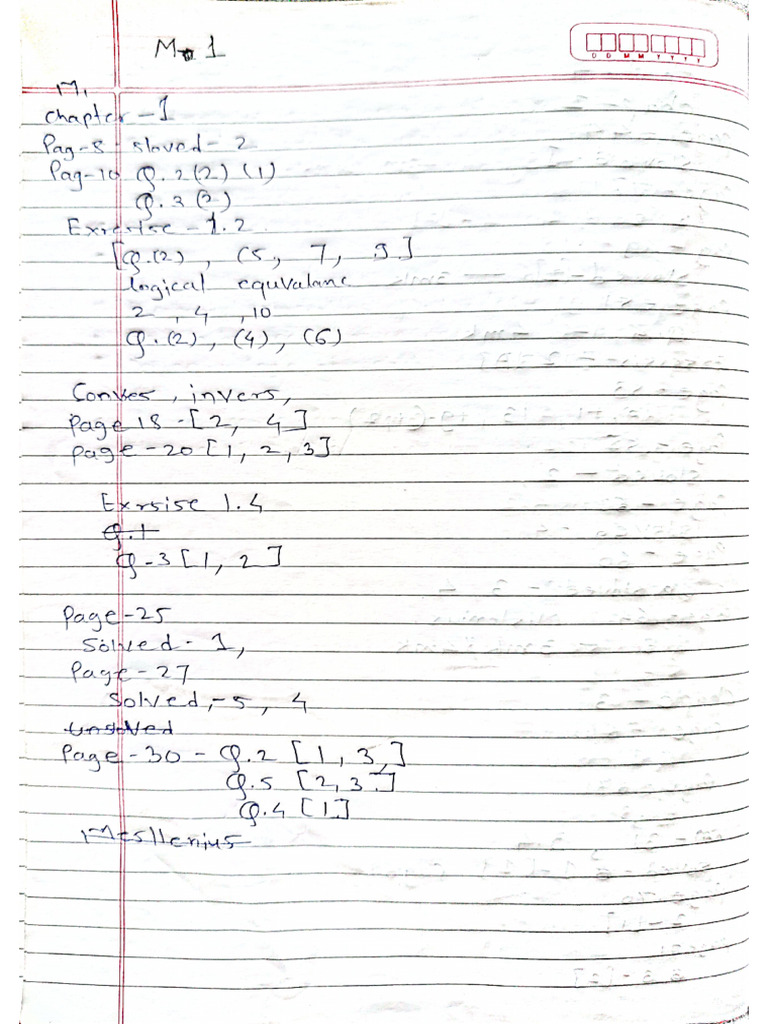 M 1
D D M M Y Y Y Y
M.
chapter - 1
Pag-8 slaved - 2
Pag-10 Q.2(2) (1)
Q.3(2)
Exrerise - 1.2
[Q.(2), (5, 7, 9]
logical equvalanc
2, 4, 10
Q.(2), (4), (6)
Conves, invers,
Page 18 - [2, 4]
page - 20 [1, 2, 3]
Exrsise 1.4
Q.1
Q-3 [1, 2]
Page-25
Solved - 1,
Page-27
Solved,-5, 4
unsolved
Page-30 - Q.2 [1, 3,]
Q.5 [2, 3.]
Q.4 [1]